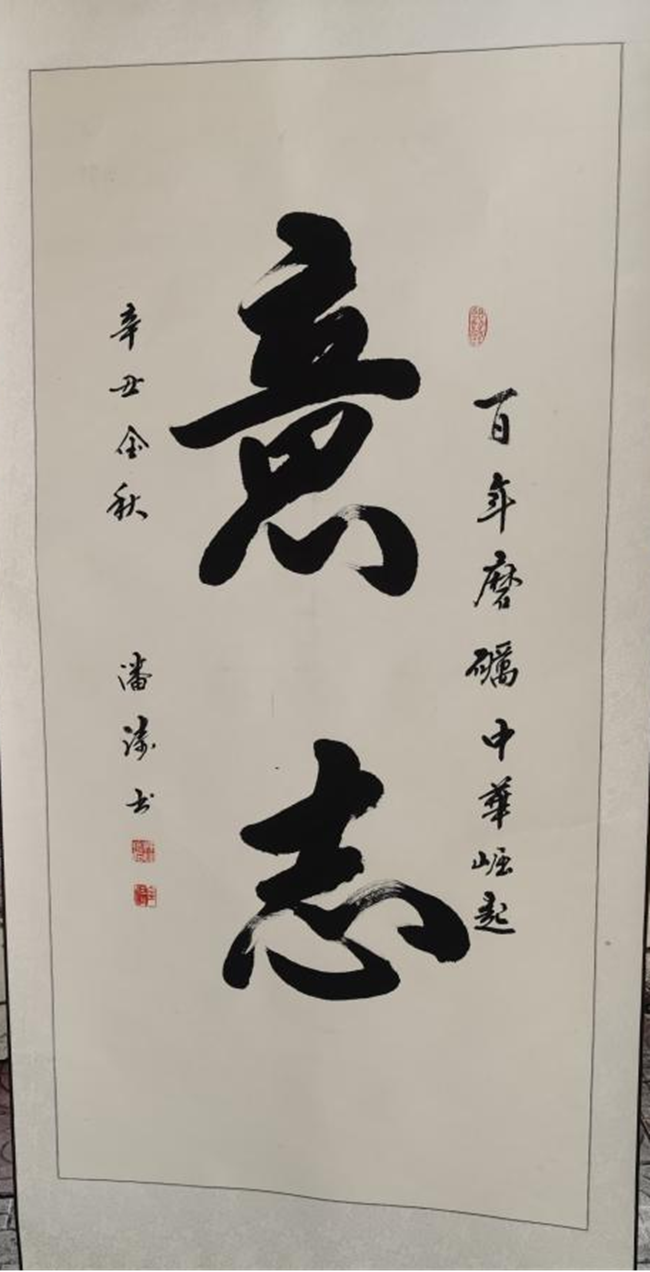 百年磨礪中華崛起
意志
辛丑金秋
潘涛书